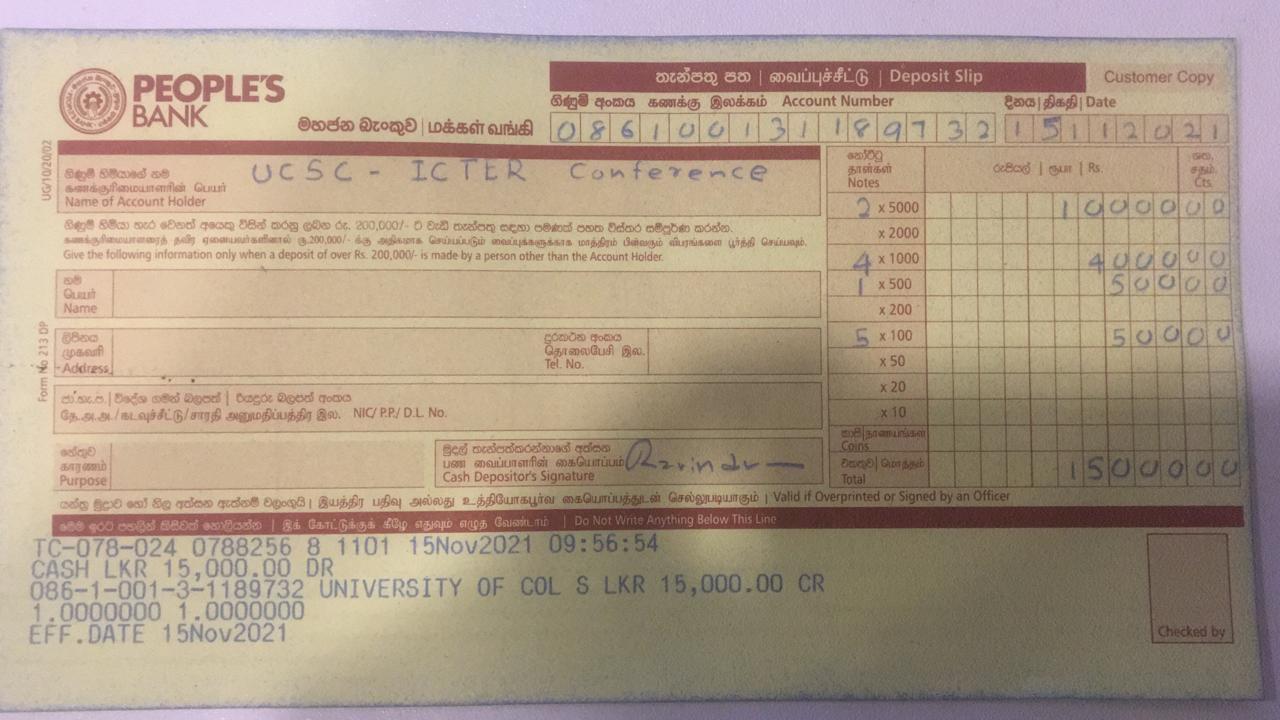 PEOPLE'S BANK
තැන්පතු පත | வைப்புச்சீட்டு | Deposit Slip
Customer Copy
මහජන බැංකුව | மக்கள் வங்கி
ගිණුම් අංකය கணக்கு இலக்கம் Account Number
086100131189732
දිනය | திகதி | Date
15112021
UG/10/20/02
ගිණුම් හිමියාගේ නම
கணக்குரிமையாளரின் பெயர்
Name of Account Holder
UCSC - ICTER Conference
ගිණුම් හිමියා හැර වෙනත් අයෙකු විසින් කරනු ලබන රු. 200,000/- ට වැඩි තැන්පතු සඳහා පමණක් පහත විස්තර සම්පූර්ණ කරන්න.
கணக்குரிமையாளரைத் தவிர ஏனையவர்களினால் ரூ.200,000/- க்கு அதிகமாக செய்யப்படும் வைப்புக்களுக்காக மாத்திரம் பின்வரும் விபரங்களை பூர்த்தி செய்யவும்.
Give the following information only when a deposit of over Rs. 200,000/- is made by a person other than the Account Holder.
නම
பெயர்
Name
ලිපිනය
முகவரி
Address
දුරකථන අංකය
தொலைபேசி இல.
Tel. No.
Form No 213 DP
ජා.හැ.ප. | විදේශ ගමන් බලපත් | රියදුරු බලපත් අංකය
தே.அ.அ./கடவுச்சீட்டு/சாரதி அனுமதிப்பத்திர இல. NIC/ P.P./ D.L. No.
හේතුව
காரணம்
Purpose
මුදල් තැන්පත්කරන්නාගේ අත්සන
பண வைப்பாளரின் கையொப்பம்
Cash Depositor's Signature
නෝට්ටු
தாள்கள்
Notes
රුපියල් | ரூபா | Rs.
ශත.
சதம்.
Cts.
2 x 5000 1000000
x 2000
4 x 1000 400000
1 x 500 50000
x 200
5 x 100 50000
x 50
x 20
x 10
කාසි|நாணயங்கள்
Coins
එකතුව | மொத்தம்
Total 1500000
යන්ත්‍ර මුද්‍රාව හෝ නිල අත්සන ඇත්නම් වලංගුයි | இயத்திர பதிவு அல்லது உத்தியோகபூர்வ கையொப்பத்துடன் செல்லுபடியாகும் | Valid if Overprinted or Signed by an Officer
මෙම ඉරට පහලින් කිසිවක් නොලියන්න | இக் கோட்டுக்குக் கீழே எதுவும் எழுத வேண்டாம் | Do Not Write Anything Below This Line
TC-078-024 0788256 8 1101 15Nov2021 09:56:54
CASH LKR 15,000.00 DR
086-1-001-3-1189732 UNIVERSITY OF COL S LKR 15,000.00 CR
1.0000000 1.0000000
EFF.DATE 15Nov2021
Checked by